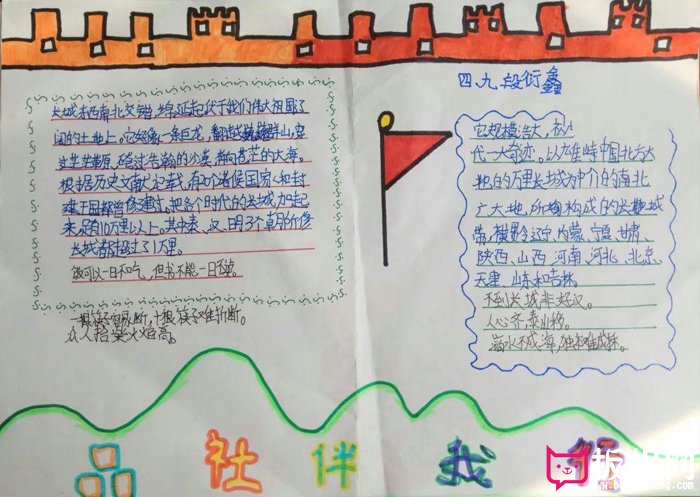 四.九.段衍鑫
长城东西南北交错,绵延起伏于我们伟大祖国辽
阔的土地上。它好像一条巨龙,翻越巍巍群山,穿
过茫茫草原,跨过浩瀚的沙漠,奔向苍茫的大海。
根据历史文献记载,有20个诸侯国家和封
建王国都曾修建过。把各个时代的长城加起
来,总有10万里以上。其中秦、汉、明3个朝所修
长城都超过了1万里。
饭可以一日不吃,但书不能一日不读
一根筷子容易断,十根筷子难折断。
众人拾柴火焰高。
它规模浩大,被
代一大奇迹。以雄峙中国北方大
地的万里长城为中介的南北
广大地,所构成的长城地
带,横贯辽宁、内蒙、宁夏、甘肃、
陕西、山西、河南、河北、北京、
天津、山东和吉林。
不到长城非好汉。
人心齐,泰山移。
滴水不成海,独木难成林。
品 社 伴 我